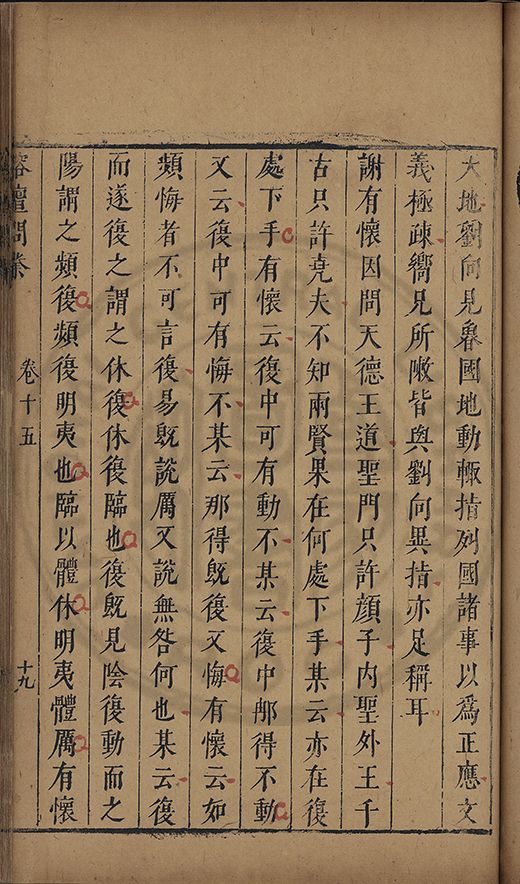 大地劉向見魯國地動輒指列國諸事以為正應文
義極疎嚮兄所敶皆與劉向異指亦足稱耳
謝有懷因問天德王道聖門只許顏子內聖外王千
古只許堯夫不知兩賢果在何處下手某云亦在復
處下手有懷云復中可有動不某云復中那得不動
又云復中可有悔不某云那得既復又悔有懷云如
頻悔者不可言復易既說厲又說無咎何也某云復
而遂復之謂之休復休復臨也復既見陰復動而之
陽謂之頻復頻復明夷也臨以體休明夷體厲有懷
榕壇問業
卷十五
十九